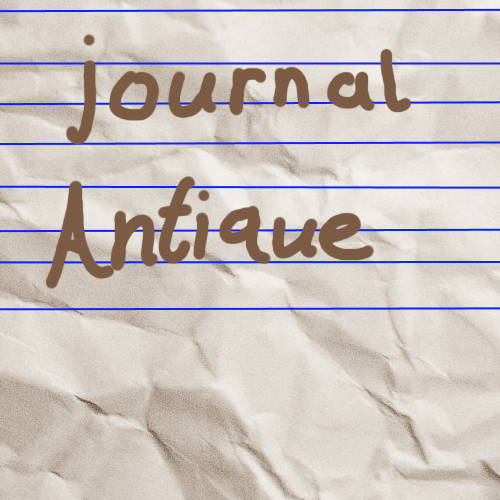 journal
Antique